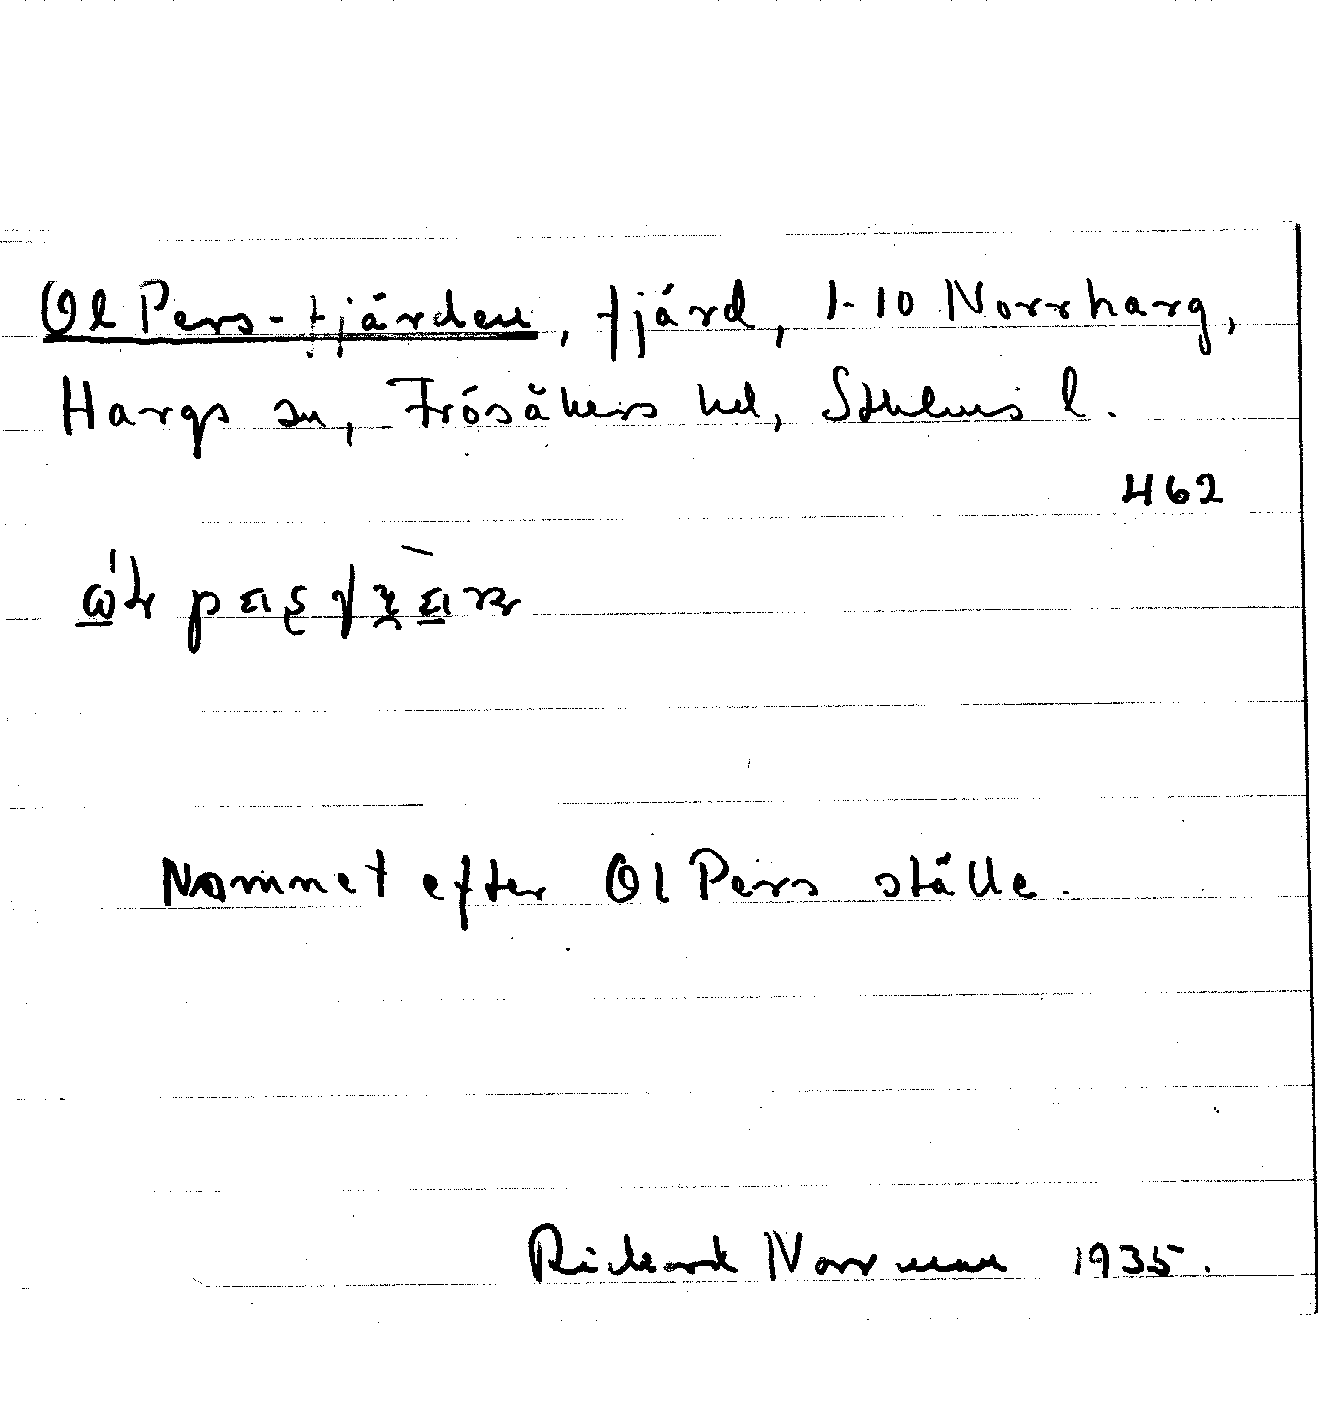 Ol Pers-fjärden, fjärd, 1-10 Norrharg,
Hargs sn, Frösåkers hd, Sthlms l.
462
Namnet efter Ol Pers ställe.
Rickard Norrman 1935.